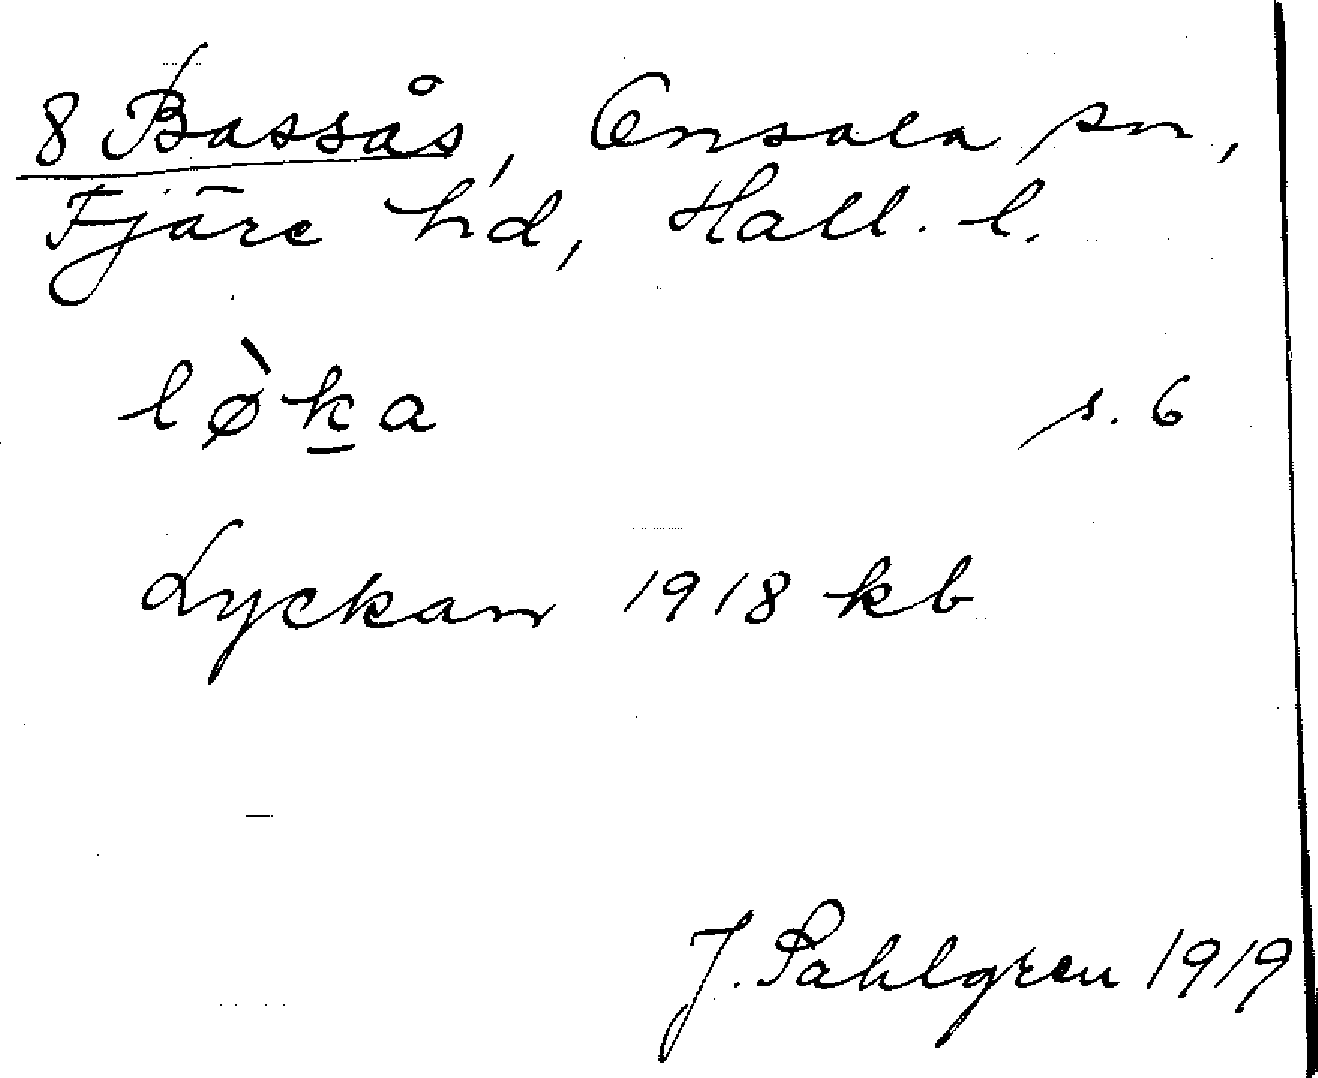 8 Bassås, Onsala sn,
Fjäre hd, Hall. l.
lø̀k̲a s. 6
Lyckan 1918 kb
J. Sahlgren 1919